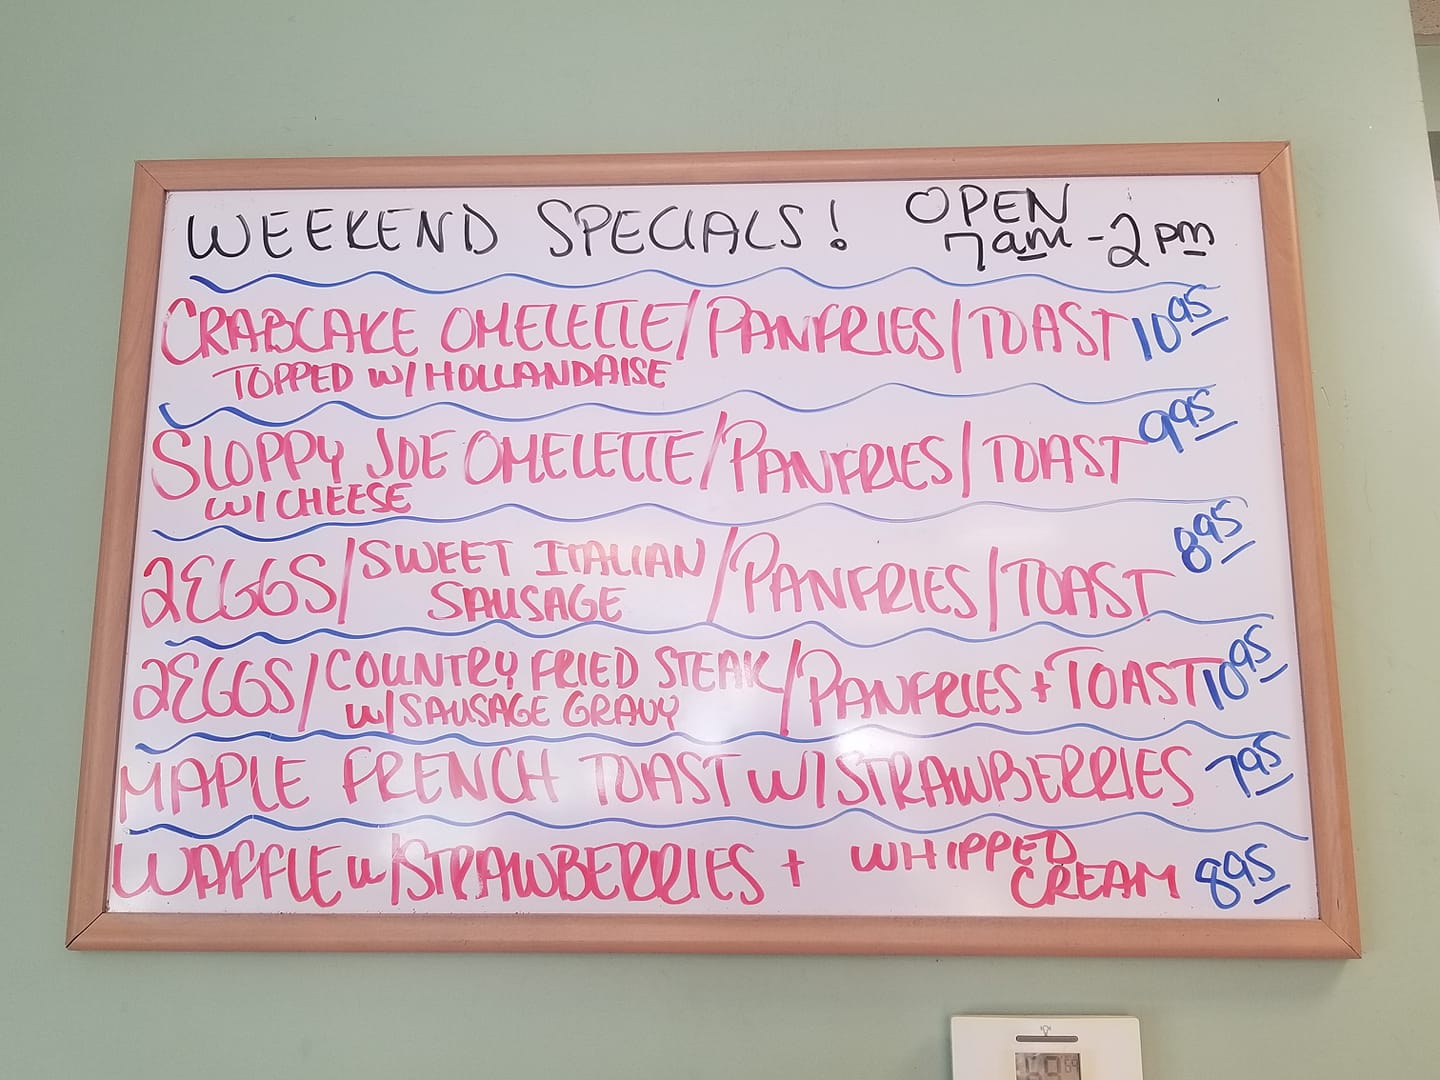 WEEKEND SPECIALS! OPEN
7am - 2pm
CRABCAKE OMELETTE / PANFRIES / TOAST 10.95
TOPPED W/ HOLLANDAISE
SLOPPY JOE OMELETTE / PANFRIES / TOAST 9.95
W/ CHEESE
2 EGGS / SWEET ITALIAN SAUSAGE / PANFRIES / TOAST 8.95
2 EGGS / COUNTRY FRIED STEAK W/ SAUSAGE GRAVY / PANFRIES + TOAST 10.95
MAPLE FRENCH TOAST W/ STRAWBERRIES 7.95
WAFFLE W/ STRAWBERRIES + WHIPPED CREAM 8.95